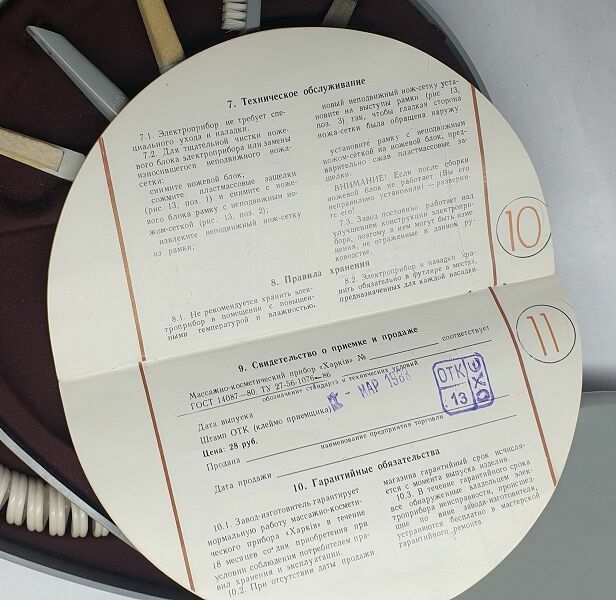 7. Техническое обслуживание
7.1. Электроприбор не требует спе-
циального ухода и наладки.
7.2. Для тщательной чистки ноже-
вого блока электроприбора или замены
износившегося неподвижного ножа-
сетки:
снимите ножевой блок;
сожмите пластмассовые защелки
(рис. 13, поз. 1) и снимите с ноже-
вого блока рамку с неподвижным но-
жом-сеткой (рис. 13, поз. 2);
извлеките неподвижный нож-сетку
из рамки;
новый неподвижный нож-сетку уста-
новите на выступы рамки (рис. 13,
поз. 3) так, чтобы гладкая сторона
ножа-сетки была обращена наружу.
установите рамку с неподвижным
ножом-сеткой на ножевой блок, пред-
варительно сжав пластмассовые за-
щелки.
ВНИМАНИЕ! Если после сборки
ножевой блок не работает (Вы его
неправильно установили) — разверни-
те его!
7.3. Завод постоянно работает над
улучшением конструкции электропри-
бора, поэтому в нем могут быть изме-
нения, не отраженные в данном ру-
ководстве.
10
8. Правила хранения
8.1. Не рекомендуется хранить элек-
троприбор в помещении с повышен-
ными температурой и влажностью.
8.2. Электроприбор и насадки хра-
нить обязательно в футляре в местах,
предназначенных для каждой насадки.
11
9. Свидетельство о приемке и продаже
Массажно-косметический прибор «Харків» № соответствует
ГОСТ 14087—80, ТУ 27-56-1076—86
обозначение стандарта и технических условий
Дата выпуска МАР 198
Штамп ОТК (клеймо приемщика)
ОТК
13
Цена: 28 руб.
Продана
наименование предприятия торговли
Дата продажи
10. Гарантийные обязательства
10.1. Завод-изготовитель гарантирует
нормальную работу массажно-космети-
ческого прибора «Харків» в течение
18 месяцев со дня приобретения при
условии соблюдения потребителем пра-
вил хранения и эксплуатации.
10.2. При отсутствии даты продажи
магазина гарантийный срок исчисля-
ется с момента выпуска изделия.
10.3. В течение гарантийного срока
все обнаруженные владельцем элек-
троприбора неисправности, происшед-
шие по вине завода-изготовителя,
устраняются бесплатно в мастерской
гарантийного ремонта.